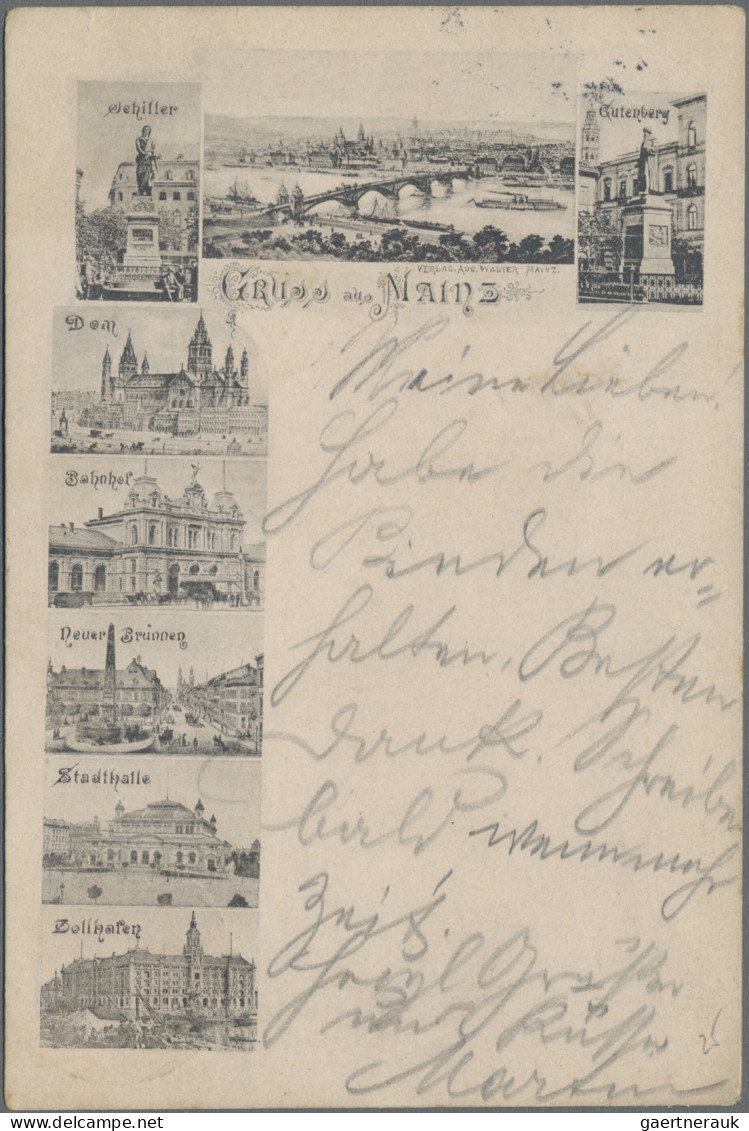 Schiller
Gutenberg
VERLAG. AUG. WALTER MAINZ.
Gruss aus Mainz
Dom
Bahnhof
Neuer Brunnen
Stadthalle
Zollhafen
Meine Lieben!
Habe die
Binden er=
halten, Besten
Dank. Schreibe
bald wenn mehr
Zeit.
Herzl Grüße
und Küsse
Martin
gaertnerauk